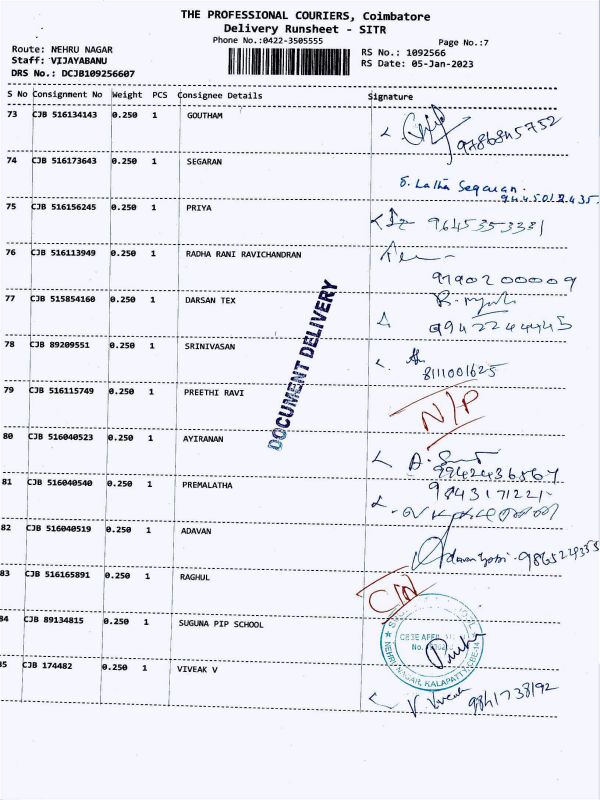 THE PROFESSIONAL COURIERS, Coimbatore
Delivery Runsheet - SITR
Phone No.:0422-3505555 Page No.:7
Route: NEHRU NAGAR RS No.: 1092566
Staff: VIJAYABANU RS Date: 05-Jan-2023
DRS No.: DCJB109256607
S No Consignment No Weight PCS Consignee Details Signature
73 CJB 516134143 0.250 1 GOUTHAM
9786845752
74 CJB 516173643 0.250 1 SEGARAN
S. Latha Segaran.
9445012435.
75 CJB 516156245 0.250 1 PRIYA
9645353331
76 CJB 516113949 0.250 1 RADHA RANI RAVICHANDRAN
9790200009
77 CJB 515854160 0.250 1 DARSAN TEX
09422244445
78 CJB 89209551 0.250 1 SRINIVASAN
8111001625
DOCUMENT DELIVERY
79 CJB 516115749 0.250 1 PREETHI RAVI
N/P
80 CJB 516040523 0.250 1 AYIRANAN
9942436567
81 CJB 516040540 0.250 1 PREMALATHA
9843171221
82 CJB 516040519 0.250 1 ADAVAN
83 CJB 516165891 0.250 1 RAGHUL
84 CJB 89134815 0.250 1 SUGUNA PIP SCHOOL
NEHRU NAGAR, KALAPATTY
85 CJB 174482 0.250 1 VIVEAK V
V. Viveak 9841738192